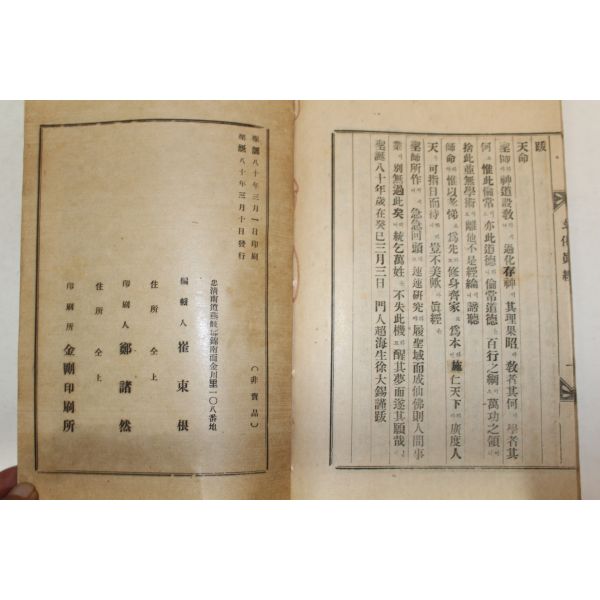 跋
天命
聖師의 神道設敎 過化存神 其理果昭 敎者其何 學者其
何 惟此倫常 亦此道德 倫常道德 百行之綱 萬功之領
捨此並無學術 離他不是經綸 誘聽
師命 惟以孝悌 爲先 修身齊家 爲本 施仁天下 廣度人
天 可指日而待 豈不美歟 眞經
聖師所作 急急回頭 速速研究 履聖域而成仙佛則人間事
業 別無過此矣 統乞萬姓 不失此機 醒其夢而遂其願哉
聖誕八十年歲在癸巳三月三日 門人超海生徐大錫謹跋
聖誕八十年三月一日印刷
聖誕八十年三月十日發行
(非賣品)
忠淸南道燕岐郡錦南面金川里一〇八番地
編輯人 崔東根
住所 仝上
印刷人 鄭諸然
住所 仝上
印刷所 金剛印刷所